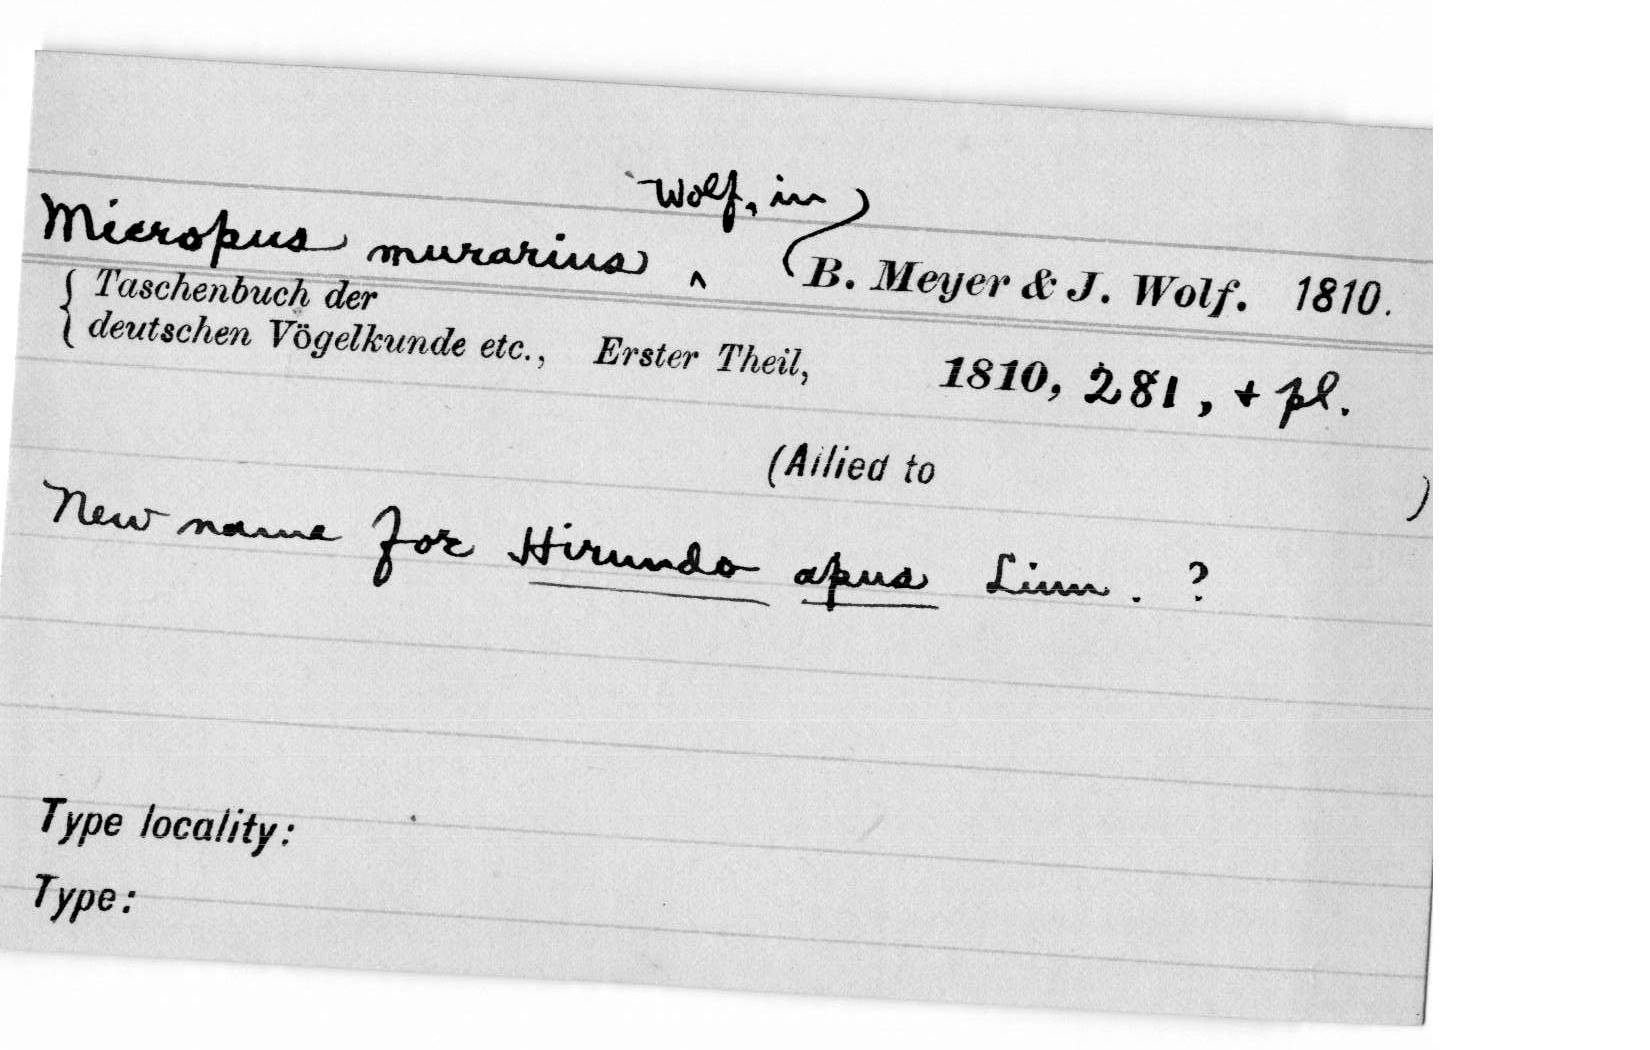 Wolf, in
Micropus murarius ^ B. Meyer & J. Wolf. 1810.
Taschenbuch der
deutschen Vögelkunde etc., Erster Theil, 1810, 281, + pl.
(Allied to )
New name for Hirundo apus Linn. ?
Type locality:
Type: